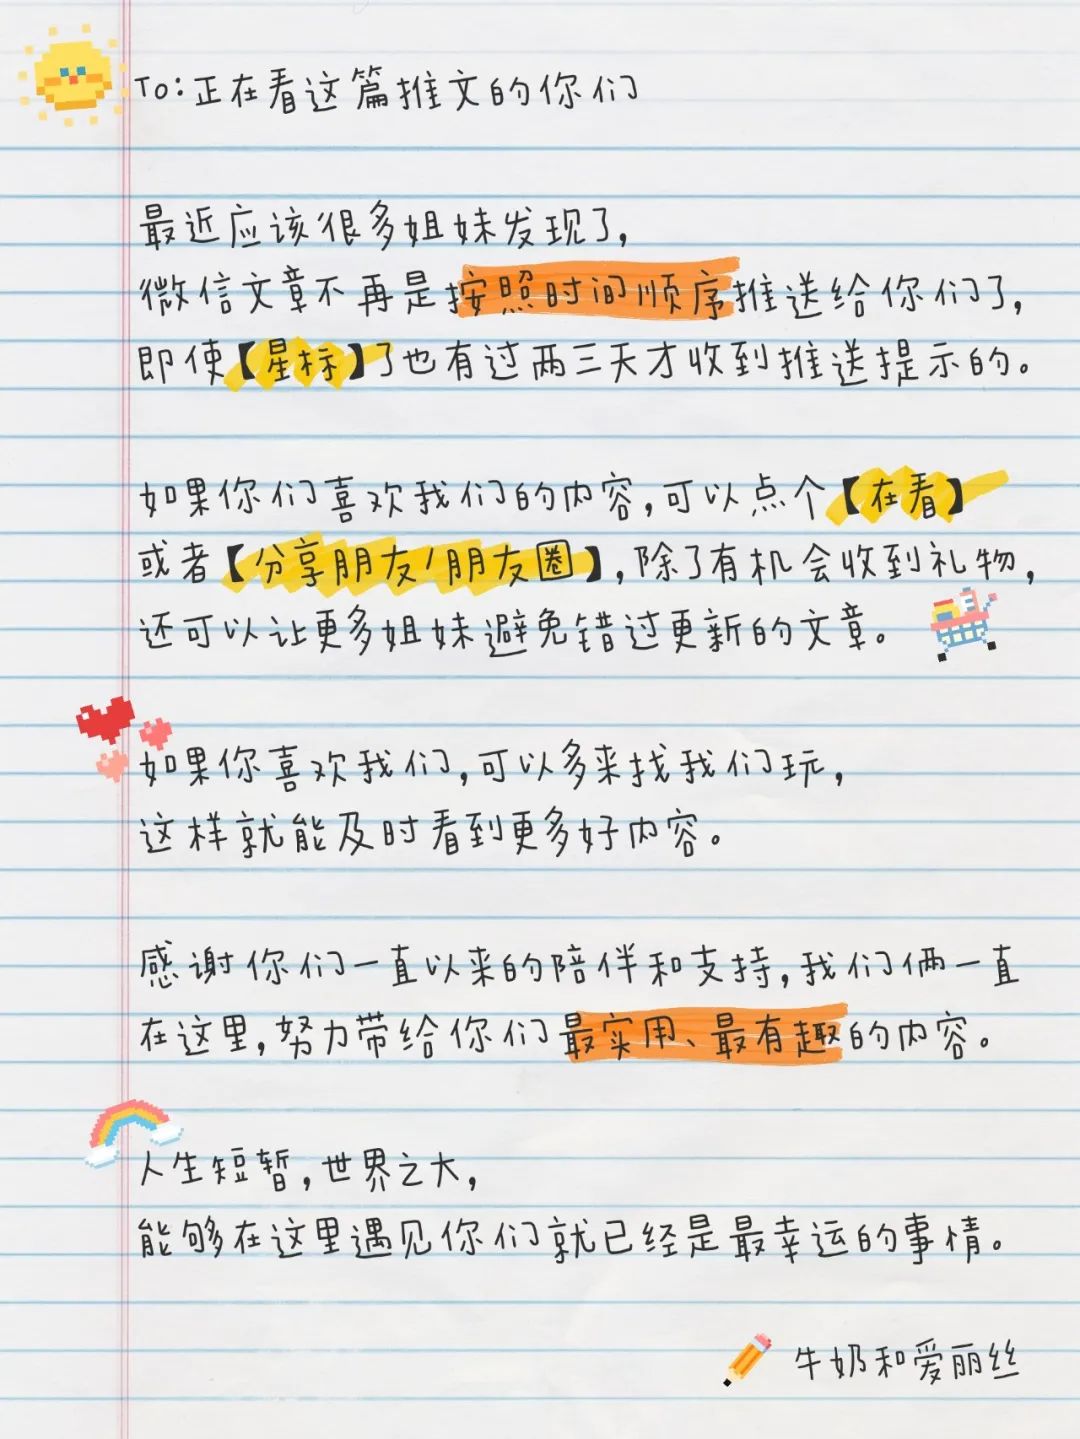 To:正在看这篇推文的你们
最近应该很多姐妹发现了,
微信文章不再是按照时间顺序推送给你们了,
即使【星标】了也有过两三天才收到推送提示的。
如果你们喜欢我们的内容,可以点个【在看】
或者【分享朋友/朋友圈】,除了有机会收到礼物,
还可以让更多姐妹避免错过更新的文章。
如果你喜欢我们,可以多来找我们玩,
这样就能及时看到更多好内容。
感谢你们一直以来的陪伴和支持,我们俩一直
在这里,努力带给你们最实用、最有趣的内容。
人生短暂,世界之大,
能够在这里遇见你们就已经是最幸运的事情。
牛奶和爱丽丝